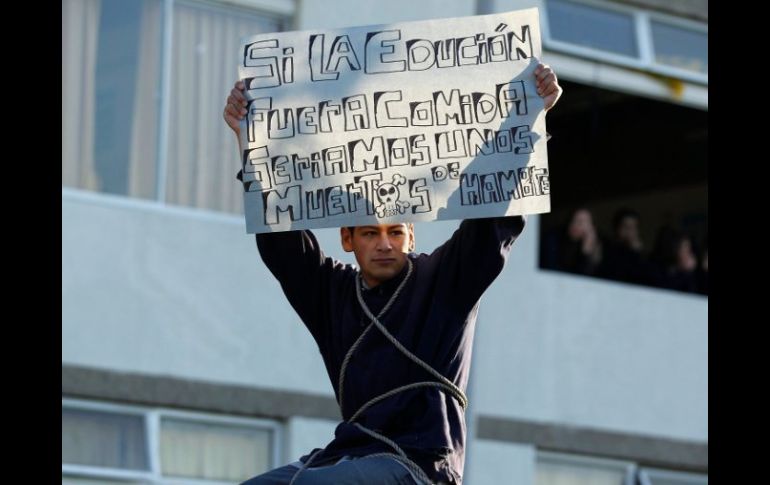 Si LA EDUCIÓN
FUERA COMIDA
SERIAMOS UNOS
MUERTOS DE HAMBRE